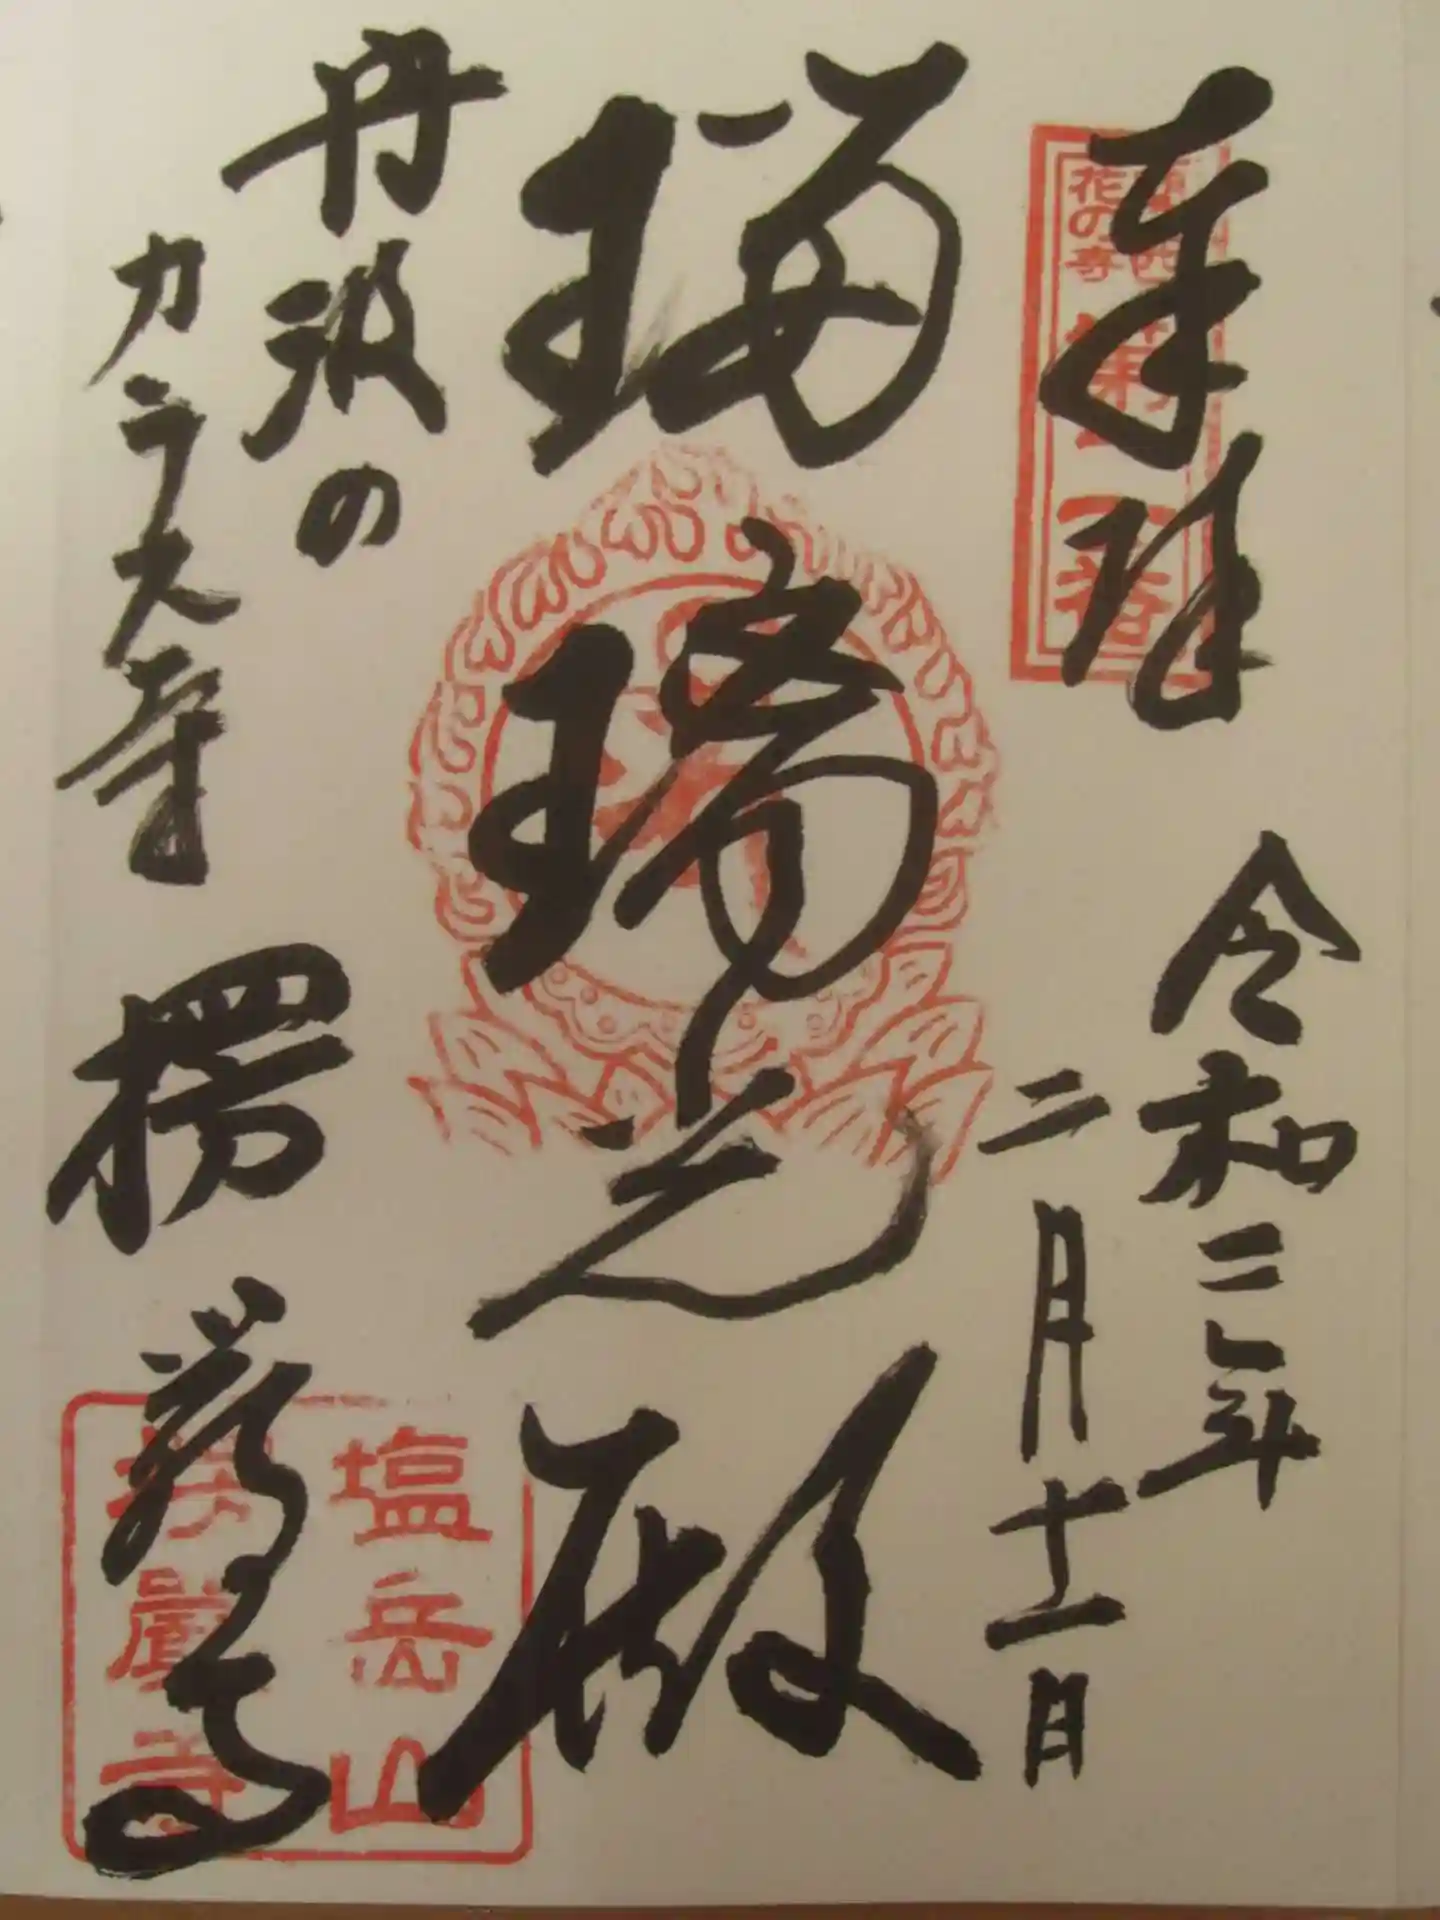 奉拝
令和二年
二月十一日
関西
花の寺
第二番
瑠璃光殿
丹波の
カラス寺
楞厳寺
塩岳山
楞厳寺